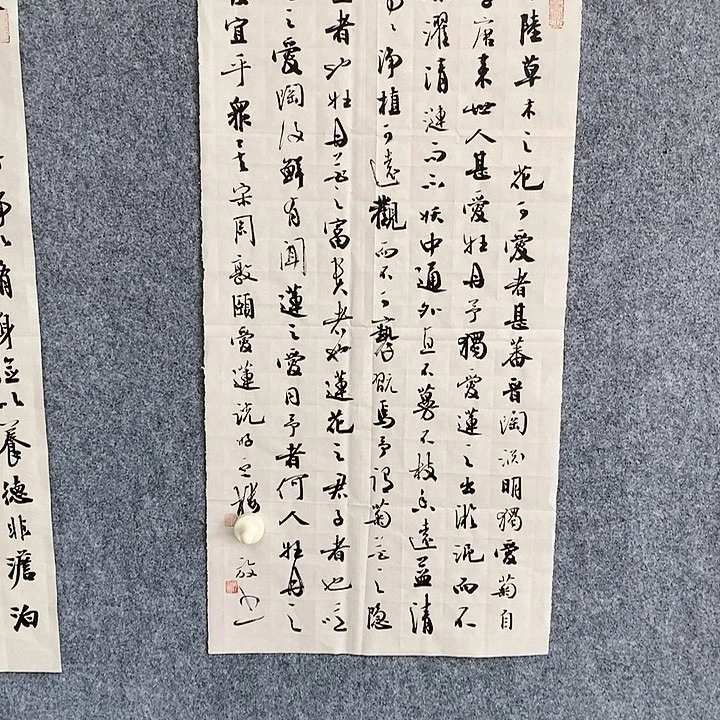 陸草木之花可愛者甚蕃晉陶淵明獨愛菊自
唐来世人甚愛牡丹予獨愛蓮之出淤泥而不
濯清漣而不妖中通外直不蔓不枝香遠益清
淨植可遠觀而不可褻翫焉予謂菊花之隐
者也牡丹花之富貴者也蓮花之君子者也噫
之愛陶後鮮有聞蓮之愛同予者何人牡丹之
宜乎眾矣宋周敦頤愛蓮說
静以脩身儉以養德非澹泊